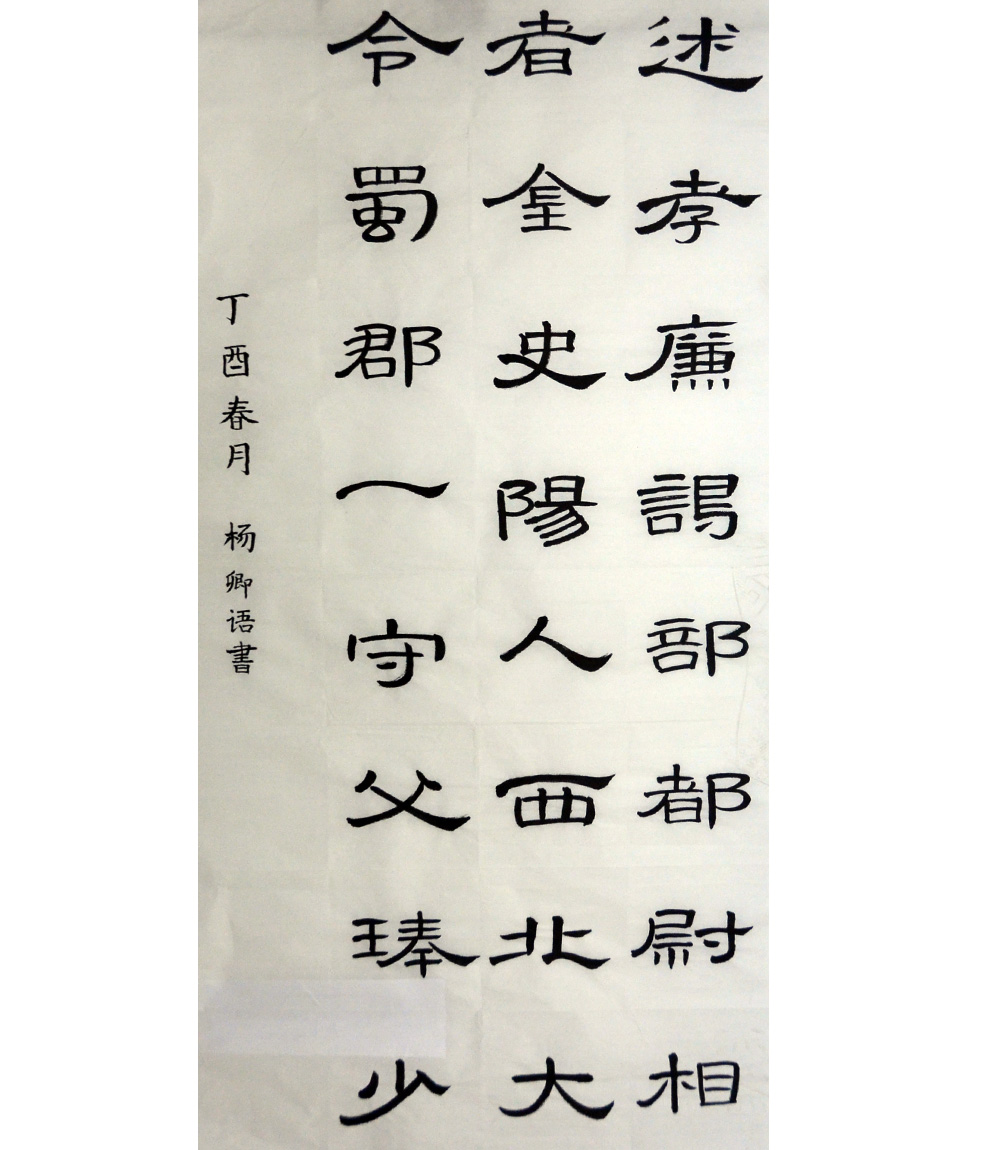 述孝廉謁部都尉相
者史陽人西北大
令蜀郡一守父琫少
丁酉春月 杨卿语書